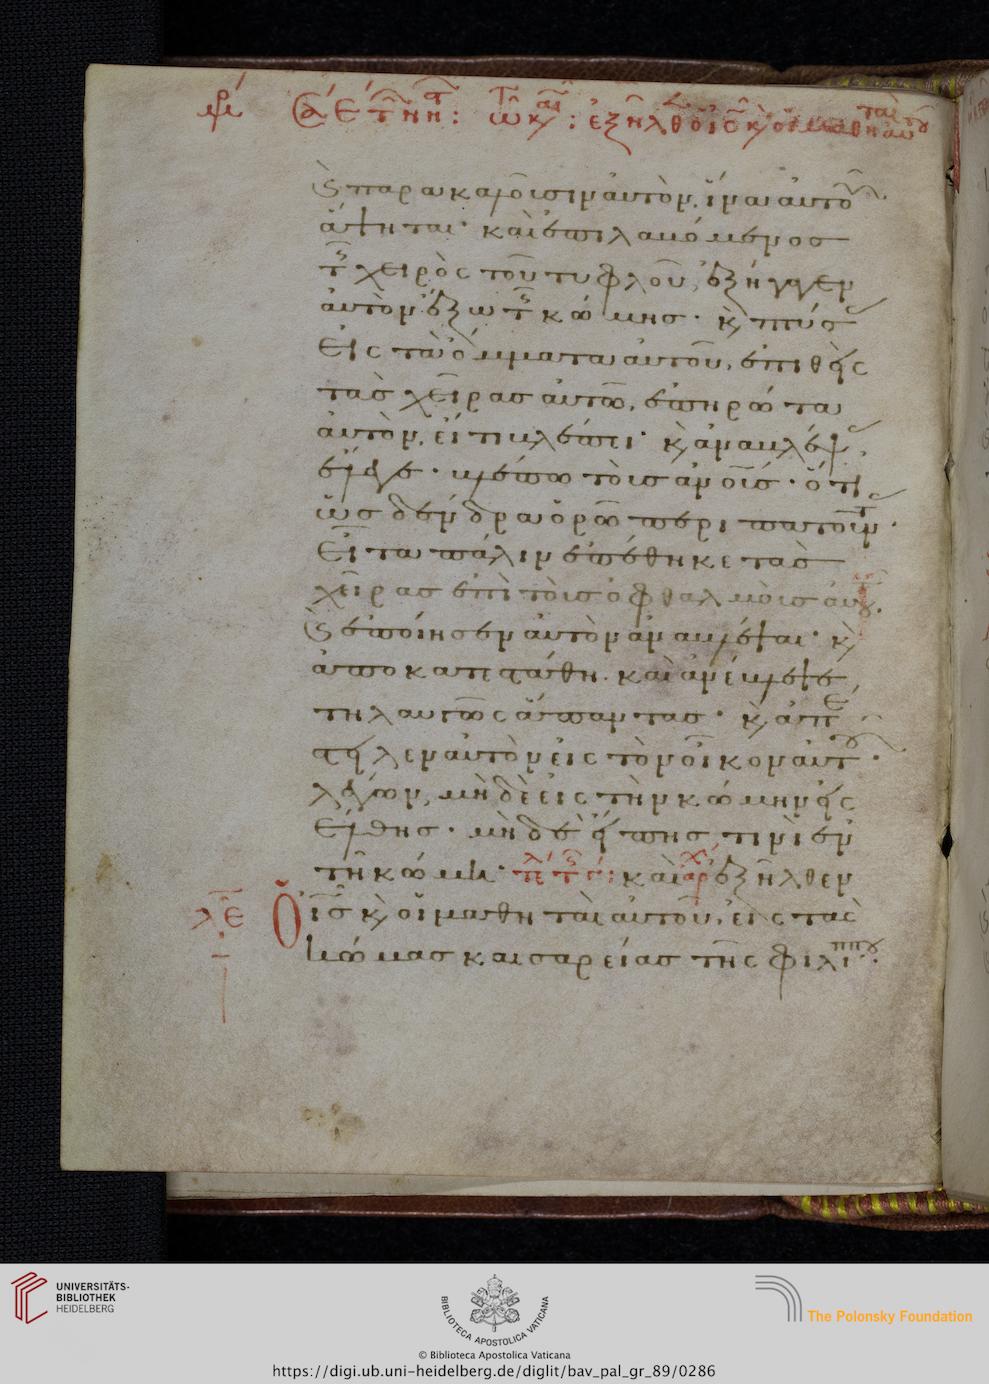 ϗ παρακαλοῦσιν αὐτὸν, ἵνα αὐτοῦ
ἅψηται· καὶ ἐπιλαβόμενος
τῆς χειρὸς τοῦ τυφλοῦ, ἐξήγαγεν
αὐτὸν ἔξω τῆς κώμης· ϗ πτύσας
εἰς τὰ ὄμματα αὐτοῦ, ἐπιθεὶς
τὰς χεῖρας αὐτῶ, ἐπηρώτα
αὐτὸν, εἴ τι βλέπει· ϗ ἀναβλέψας,
ἔλεγε· βλέπω τοὺς ἀνοὺς· ὅτι
ὡς δένδρα ὁρῶ περιπατοῦντας·
εἶτα πάλιν ἐπέθηκε τὰς
χεῖρας ἐπὶ τοὺς ὀφθαλμοὺς αὐτοῦ.
ϗ ἐποίησεν αὐτὸν ἀναβλέψαι· ϗ
ἀποκατεστάθη. καὶ ἀνέβλεψε
τηλαυγῶς ἅπαντας· ϗ ἀπέ
στειλεν αὐτὸν εἰς τὸν οἶκον αὐτοῦ·
λέγων, μὴ δὲ εἰς τὴν κώμην εἰσ
έλθης· μὴ δὲ εἴπης τινὶ ἐν
τῆ κώμη· καὶ ἐξῆλθεν
λε
Ὁ ἰς ϗ οἱ μαθηταὶ αὐτοῦ, εἰς τὰς
κώμας καισαρείας τῆς φιλίππου·
UNIVERSITÄTS-
BIBLIOTHEK
HEIDELBERG
BIBLIOTECA APOSTOLICA VATICANA
The Polonsky Foundation
© Biblioteca Apostolica Vaticana
https://digi.ub.uni-heidelberg.de/diglit/bav_pal_gr_89/0286